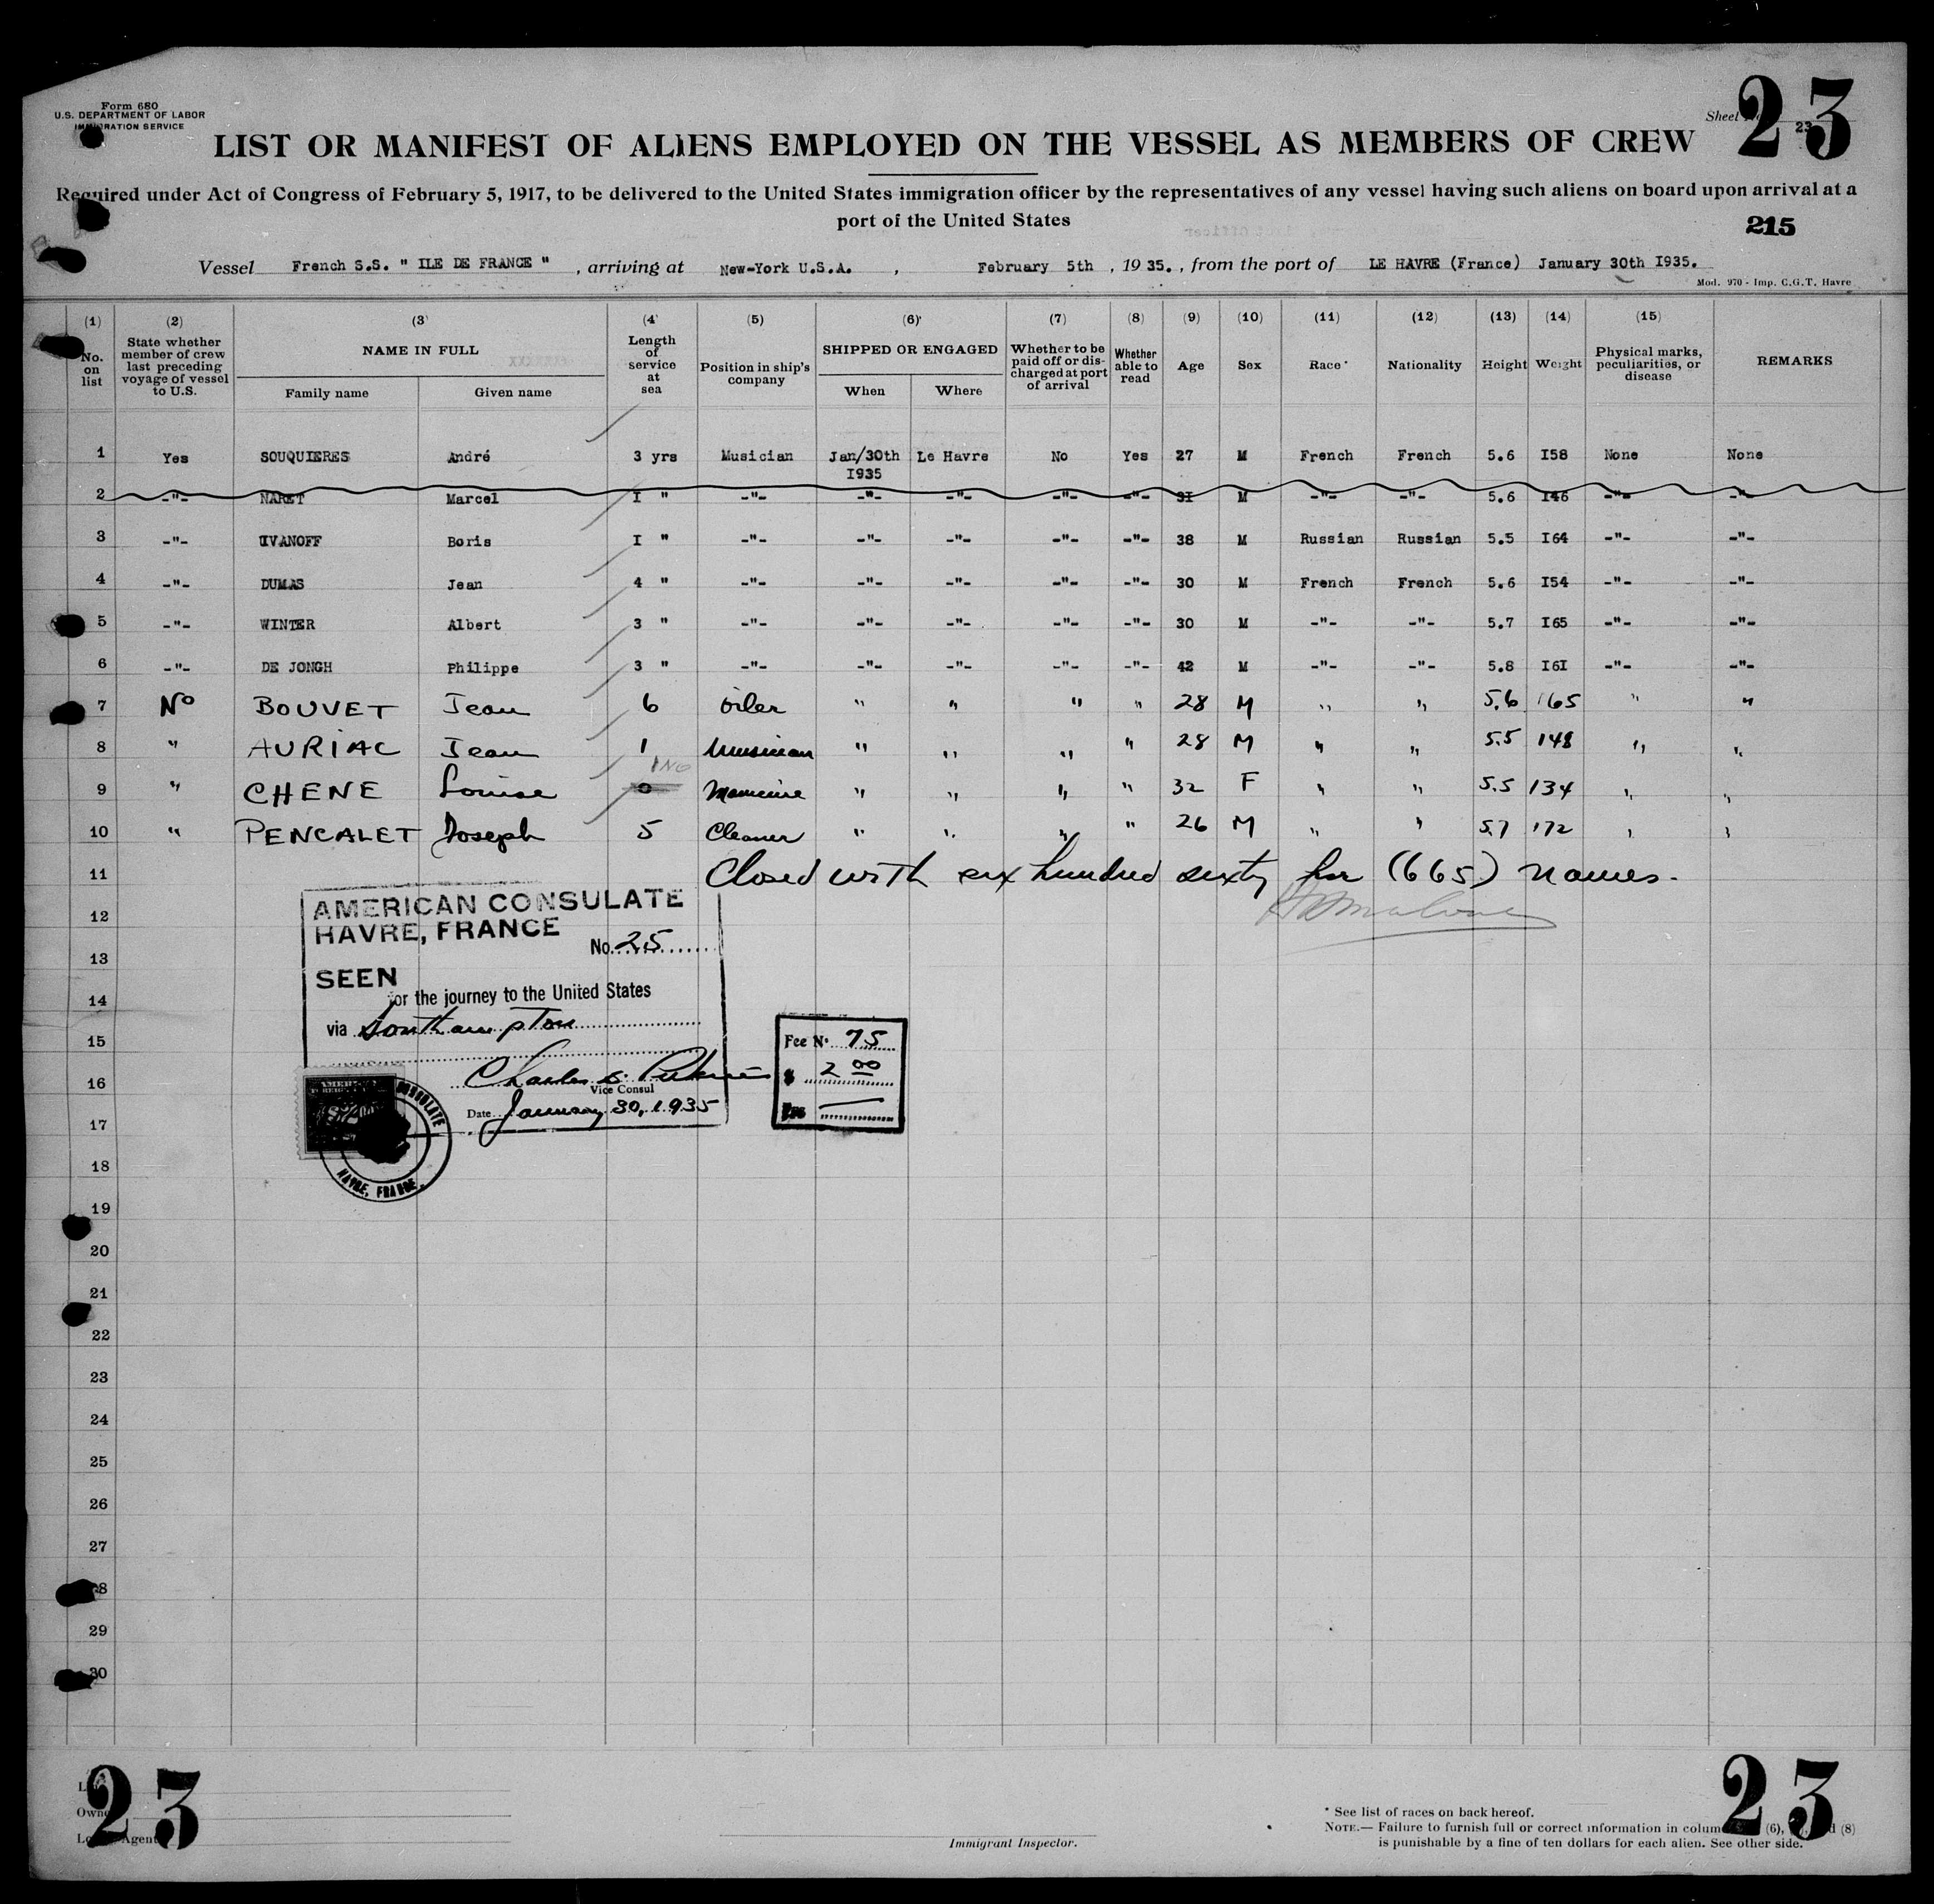 Form 680
U.S. DEPARTMENT OF LABOR
IMMIGRATION SERVICE
Sheet No. 23
23
LIST OR MANIFEST OF ALIENS EMPLOYED ON THE VESSEL AS MEMBERS OF CREW
Required under Act of Congress of February 5, 1917, to be delivered to the United States immigration officer by the representatives of any vessel having such aliens on board upon arrival at a
port of the United States
215
Vessel French S.S. " ILE DE FRANCE " , arriving at New-York U.S.A. , February 5th , 19 35. , from the port of LE HAVRE (France) January 30th I935.
Mod. 970 - Imp. C.G.T. Havre
(1) (2) (3) (4) (5) (6) (7) (8) (9) (10) (11) (12) (13) (14) (15)
No. on list State whether member of crew last preceding voyage of vessel to U.S. NAME IN FULL Family name Given name Length of service at sea Position in ship's company SHIPPED OR ENGAGED When Where Whether to be paid off or discharged at port of arrival Whether able to read Age Sex Race* Nationality Height Weight Physical marks, peculiarities, or disease REMARKS
1 Yes SOUQUIERES André 3 yrs Musician Jan/30th I935 Le Havre No Yes 27 M French French 5.6 I58 None None
2 -"- NARET Marcel I " -"- -"- -"- -"- -"- 3I M -"- -"- 5.6 I46 -"- -"-
3 -"- IVANOFF Boris I " -"- -"- -"- -"- -"- 38 M Russian Russian 5.5 I64 -"- -"-
4 -"- DUMAS Jean 4 " -"- -"- -"- -"- -"- 30 M French French 5.6 I54 -"- -"-
5 -"- WINTER Albert 3 " -"- -"- -"- -"- -"- 30 M -"- -"- 5.7 I65 -"- -"-
6 -"- DE JONGH Philippe 3 " -"- -"- -"- -"- -"- 42 M -"- -"- 5.8 I6I -"- -"-
7 No BOUVET Jean 6 oiler " " " " 28 M " " 5.6 165 " "
8 " AURIAC Jean 1 Musician " " " " 28 M " " 5.5 148 " "
9 " CHENE Louise 0 1 NO " " " " 32 F " " 5.5 134 " "
10 " PENCALET Joseph 5 Cleaner " " " " 26 M " " 5.7 172 " "
11 Closed with six hundred sixty five (665) names.
12
13
14
15
16
17
18
19
20
21
22
23
24
25
26
27
28
29
30
AMERICAN CONSULATE
HAVRE, FRANCE
No. 25
SEEN
for the journey to the United States
via Southampton
Charles
Vice Consul
Date January 30, 1935
CONSULATE
HAVRE, FRANCE.
Fee No. 75
$ 2 00
Frs
23
23
Owner
Local Agent
Immigrant Inspector.
* See list of races on back hereof.
NOTE.— Failure to furnish full or correct information in columns (6), and (8)
is punishable by a fine of ten dollars for each alien. See other side.